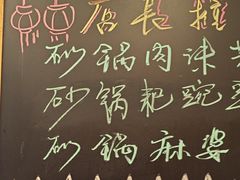 店长推
砂锅肉沫
砂锅粑豌
砂锅麻婆